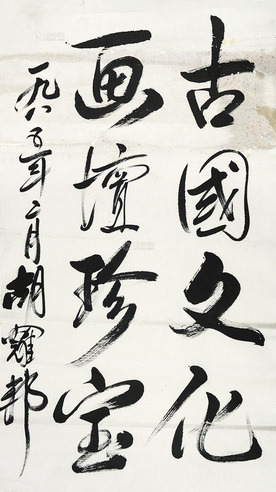 古國文化
画壇珍宝
一九八五年二月胡耀邦